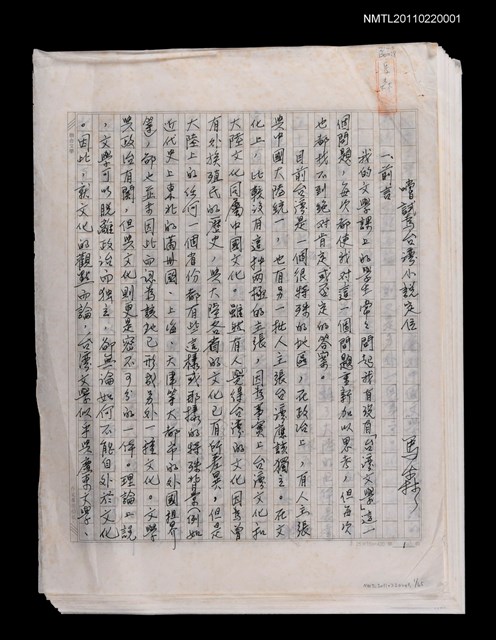 NMTL20110220001
嘗試為台灣小說定位
馬森
一、前言
我的文學課上的學生常々問起我有沒有「台灣文學」這一
個問題，每次都使我對這一個問題重新加以思考，但每次
也都找不到絕對肯定或否定的答案。
目前台灣是一個很特殊的地區，在政治上，有人主張
與中國大陸統一，也有另一批人主張台灣應該獨立。在文
化上，比較沒有這种兩極的主張，因為事實上台灣文化和
大陸文化同屬中國文化。雖然有人覺得台灣的文化因為曾
有外族殖民的歷史，與大陸各省的文化已有所差異，但是
大陸上的任何一個省份都有些這樣或那樣的特殊背景（例如
近代史上東北的滿州國、上海、天津等大都市的外國租界
等），卻也並未因此而認為該地已形成另外一種文化。文學
與政治有關，但與文化則更是密不可分的一体。理論上說
，文學可以脫離政治而獨立，卻無論如何不能自外於文化
。因此，就文化的觀點而論，台灣文學似乎與廣東文學、